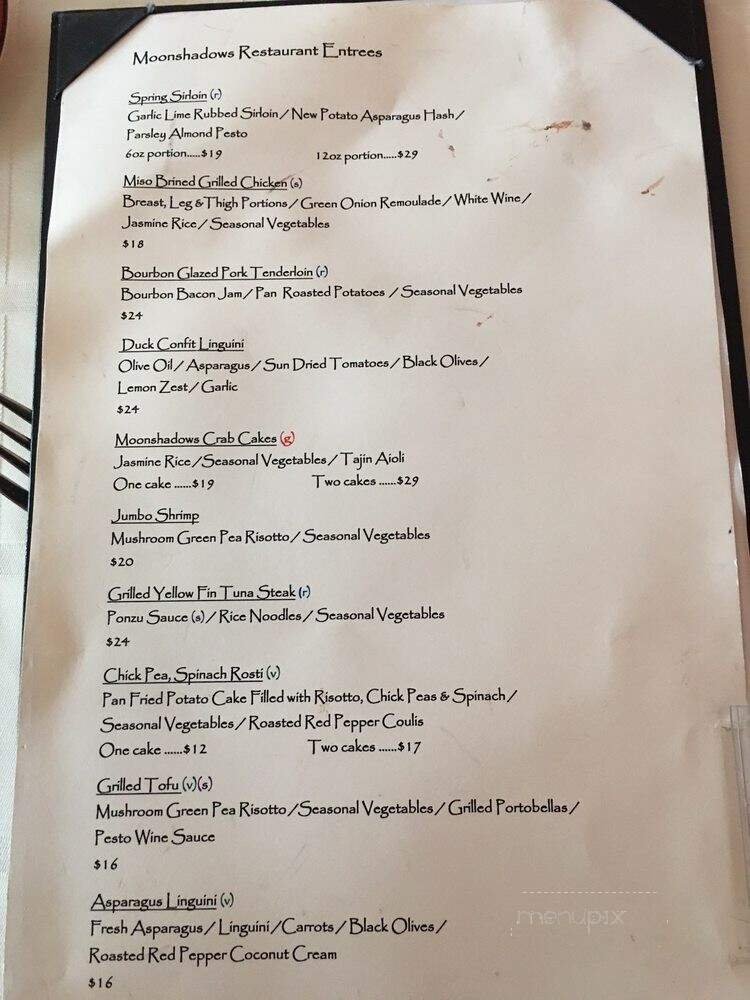 Moonshadows Restaurant Entrees
Spring Sirloin (r)
Garlic Lime Rubbed Sirloin / New Potato Asparagus Hash /
Parsley Almond Pesto
6oz portion.....$19 12oz portion.....$29
Miso Brined Grilled Chicken (s)
Breast, Leg & Thigh Portions / Green Onion Remoulade / White Wine /
Jasmine Rice / Seasonal Vegetables
$18
Bourbon Glazed Pork Tenderloin (r)
Bourbon Bacon Jam / Pan Roasted Potatoes / Seasonal Vegetables
$24
Duck Confit Linguini
Olive Oil / Asparagus / Sun Dried Tomatoes / Black Olives /
Lemon Zest / Garlic
$24
Moonshadows Crab Cakes (g)
Jasmine Rice / Seasonal Vegetables / Tajin Aioli
One cake ......$19 Two cakes ......$29
Jumbo Shrimp
Mushroom Green Pea Risotto / Seasonal Vegetables
$20
Grilled Yellow Fin Tuna Steak (r)
Ponzu Sauce (s) / Rice Noodles / Seasonal Vegetables
$24
Chick Pea, Spinach Rosti (v)
Pan Fried Potato Cake Filled with Risotto, Chick Peas & Spinach /
Seasonal Vegetables / Roasted Red Pepper Coulis
One cake ......$12 Two cakes ......$17
Grilled Tofu (v)(s)
Mushroom Green Pea Risotto / Seasonal Vegetables / Grilled Portobellas /
Pesto Wine Sauce
$16
Asparagus Linguini (v)
Fresh Asparagus / Linguini / Carrots / Black Olives /
Roasted Red Pepper Coconut Cream
$16
menupix